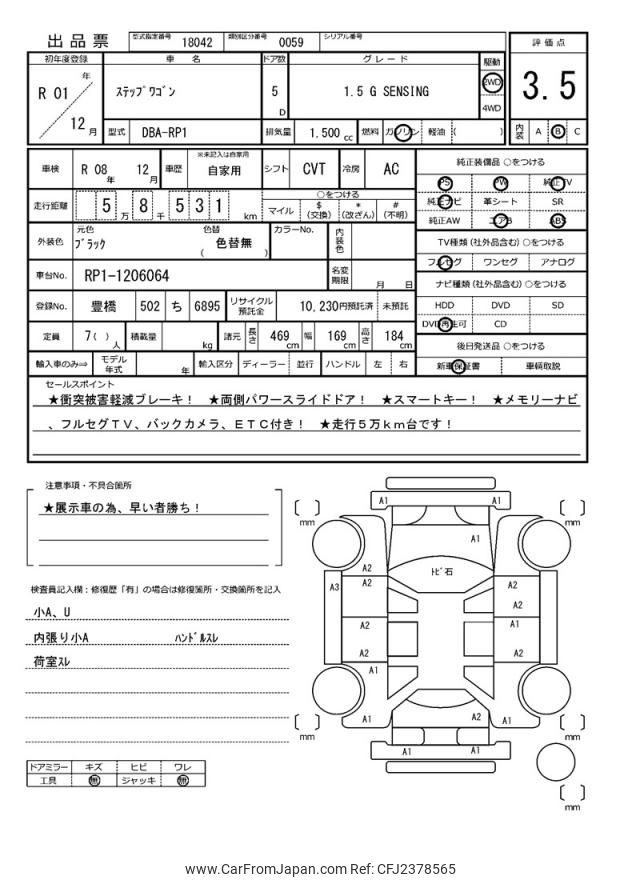 出品票 型式指定番号 18042 類別区分番号 0059 シリアル番号
初年度登録 車名 ドア数 グレード 駆動 評価点
R 01 年 12 月 ステップワゴン 5 D 1.5 G SENSING 2WD 4WD 3.5
型式 DBA-RP1 排気量 1.500 cc 燃料 ガソリン 軽油 ( ) 内装 A B C
車検 R 08 年 12 月 車歴 ※未記入は自家用 自家用 シフト CVT 冷房 AC
走行距離 5 万 8 千 5 3 1 km ○をつける マイル $ (交換) * (改ざん) # (不明)
外装色 元色 ブラック 色替 色替無 ( ) カラーNo. 内装色
車台No. RP1-1206064 名変期限 月 日
登録No. 豊橋 502 ち 6895 リサイクル預託金 10,230円預託済 未預託
定員 7( ) 人 積載量 kg 諸元 長さ 469 cm 幅 169 cm 高さ 184 cm
輸入車のみ⇒ モデル年式 年 輸入区分 ディーラー 並行 ハンドル 左 右
純正装備品 ○をつける
PS PW 純正TV
純正ナビ 革シート SR
純正AW エアB ABS
TV種類 (社外品含む) ○をつける
フルセグ ワンセグ アナログ
ナビ種類 (社外品含む) ○をつける
HDD DVD SD
DVD再生可 CD
後日発送品 ○をつける
新車保証書 車輌取説
セールスポイント
★衝突被害軽減ブレーキ! ★両側パワースライドドア! ★スマートキー! ★メモリーナビ
、フルセグTV、バックカメラ、ETC付き! ★走行5万km台です!
注意事項・不具合箇所
★展示車の為、早い者勝ち!
検査員記入欄:修復歴「有」の場合は修復箇所・交換箇所を記入
小A、U
内張り小A ハンドルスレ
荷室スレ
ドアミラー キズ ヒビ ワレ
工具 無 ジャッキ 無
A1 A1
mm mm
A1
トビ石
A2 A2
A3 A2 A2
A2
A2 A1
A2 A2
A1
A1 A2 A1
mm mm
A1 A1
mm
www.CarFromJapan.com Ref: CFJ2378565